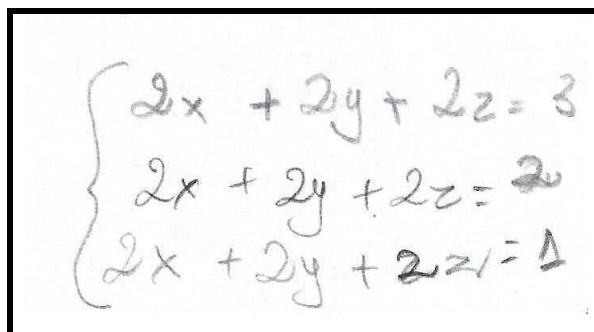 2x + 2y + 2z = 3
2x + 2y + 2z = 2
2x + 2y + 2z = 1